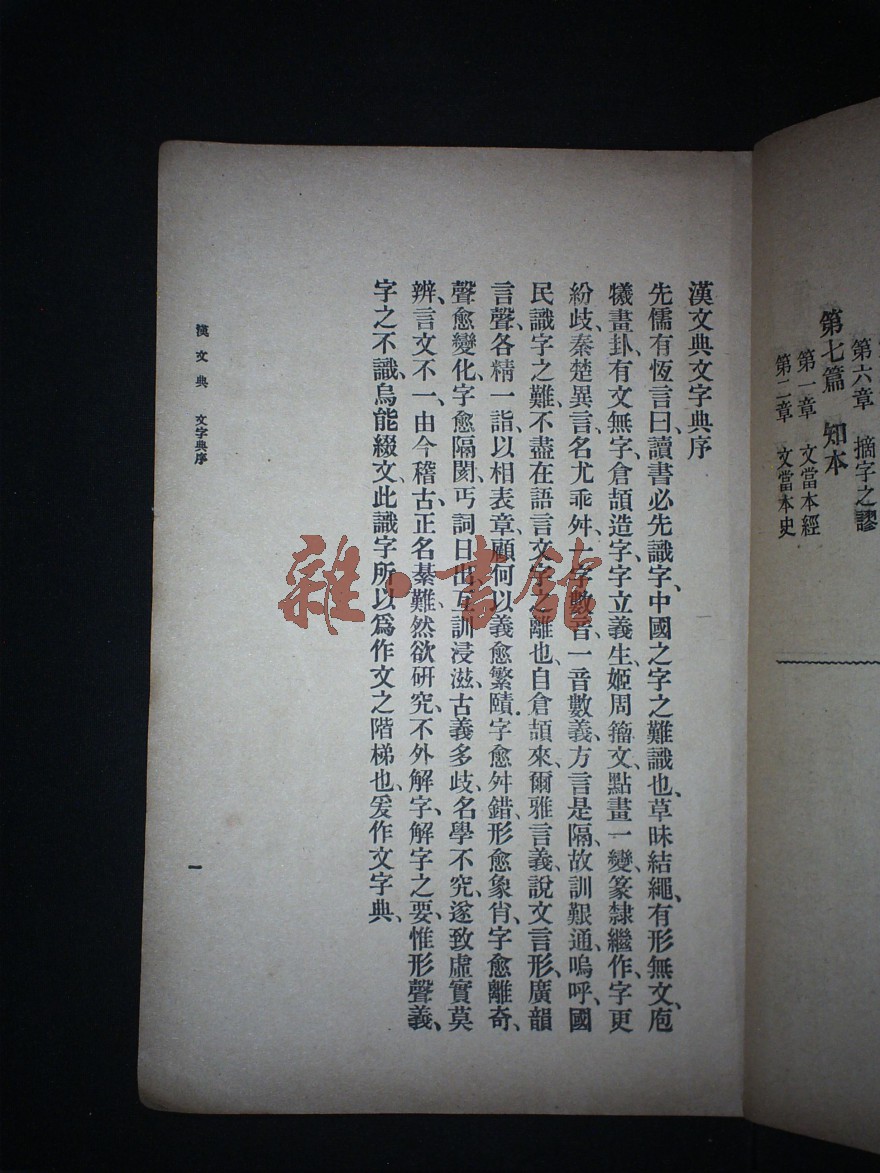 第六章　摘字之謬
第七篇　知本
第一章　文當本經
第二章　文當本史
漢文典文字典序
先儒有恆言曰、讀書必先識字、中國之字之難識也、草昧結繩、有形無文、庖
犧畫卦、有文無字、倉頡造字、字立義生、姬周籀文、點畫一變、篆隸繼作、字更
紛歧、秦楚異言、名尤乖舛、一字數音、一音數義、方言是隔、故訓艱通、嗚呼、國
民識字之難、不盡在語言文字之離也、自倉頡來、爾雅言義、說文言形、廣韻
言聲、各精一詣、以相表章、顧何以義愈繁賾、字愈舛錯、形愈象肖、字愈離奇、
聲愈變化、字愈隔閡、丐詞日出、互訓浸滋、古義多歧、名學不究、遂致虛實莫
辨、言文不一、由今稽古、正名綦難、然欲研究、不外解字、解字之要、惟形聲義、
字之不識、烏能綴文、此識字所以爲作文之階梯也、爰作文字典、
漢文典　文字典序
一
雜·書館